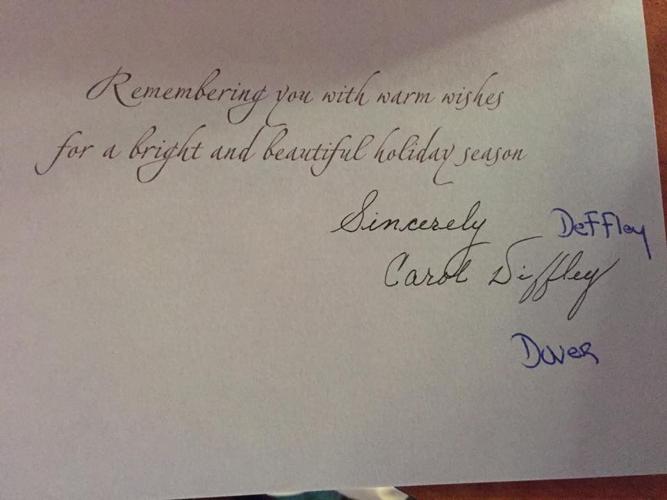 Remembering you with warm wishes
for a bright and beautiful holiday season
Sincerely
Deffley
Carol Diffley
Dover